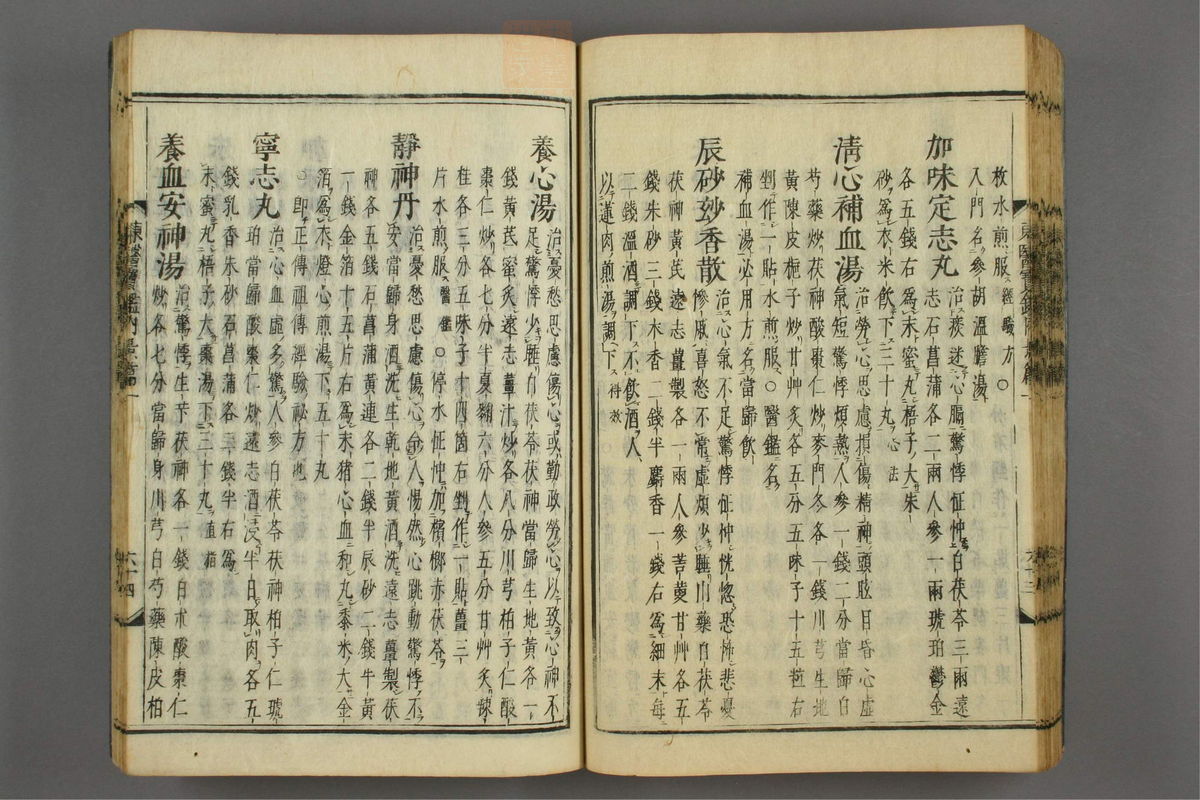 枚水煎服經驗方○
入門名參胡溫膽湯
加味定志丸治痰迷心膈驚悸怔忡白茯苓三兩遠
志石菖蒲各二兩人參一兩琥珀鬱金
各五錢右爲末蜜丸梧子大朱
砂爲衣米飮下三十丸心法
淸心補血湯治勞心思慮損傷精神頭眩目昏心虛
氣短驚悸煩蒸人參一錢二分當歸白
芍藥炒茯神酸棗仁炒麥門冬各一錢川芎生地
黃陳皮梔子炒甘艸炙各五分五味子十五粒右
剉作一貼水煎服○醫鑑名
補血湯必用方名當歸飮
辰砂妙香散治心氣不足驚悸怔忡恍惚恐怖悲憂
慘戚喜怒不常虛煩少睡川藥白茯苓
茯神黃芪遠志薑製各一兩人參吉更甘艸各五
錢朱砂三錢木香二錢半麝香一錢右爲細末每
二錢溫酒調下不飮酒人
以蓮肉煎湯調下得效
養心湯治憂愁思慮傷心或勤政勞心以致心神不
足驚悸少睡白茯苓茯神當歸生地黃各一
錢黃芪蜜炙遠志薑汁炒各八分川芎柏子仁酸
棗仁炒各七分半夏麴六分人參五分甘艸炙辣
桂各三分五味子十四箇右剉作一貼薑三
片水煎服醫鑑○停水怔忡加檳榔赤茯苓
靜神丹治憂愁思慮傷心令人惕然心跳動驚悸不
安當歸身酒洗生乾地黃酒洗遠志薑製茯
神各五錢石菖蒲黃連各二錢半辰砂二錢牛黃
一錢金箔十五片右爲末猪心血和丸黍米大金
箔爲衣燈心煎湯下五十丸
○卽正傳祖傳經驗祕方也
寧志丸治心血虛多驚人參白茯苓茯神柏子仁琥
珀當歸酸棗仁炒遠志酒浸半日取肉各五
錢乳香朱砂石菖蒲各三錢半右爲
末蜜丸梧子大棗湯下三十丸直指
養血安神湯治驚悸生芐茯神各一錢白朮酸棗仁
炒各七分當歸身川芎白芍藥陳皮柏
東醫寶鑑內景篇一
六十四